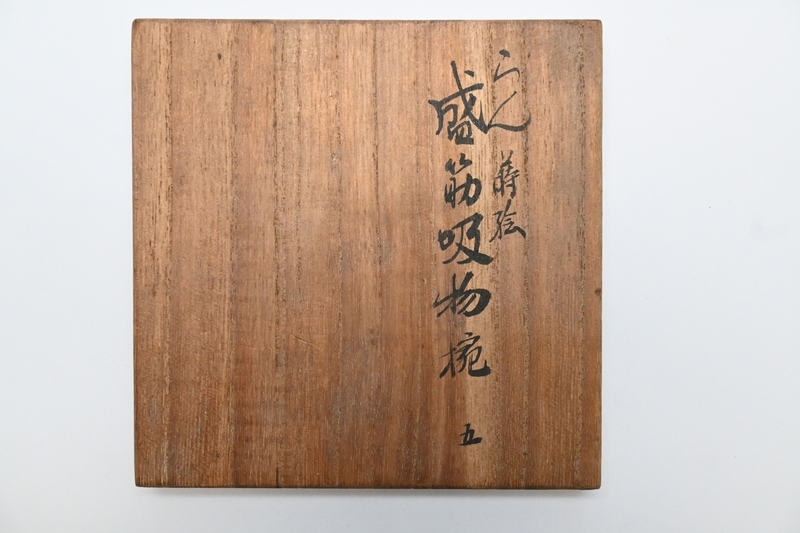 らん蒔絵
盛筋吸物椀 五